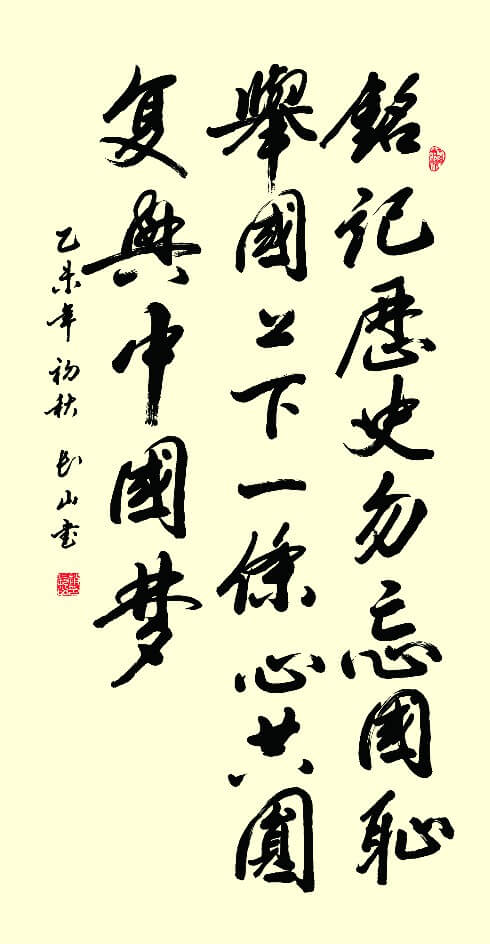 銘记歷史勿忘國恥
舉國上下一條心共圓
复興中國梦
乙未年初秋 長山书